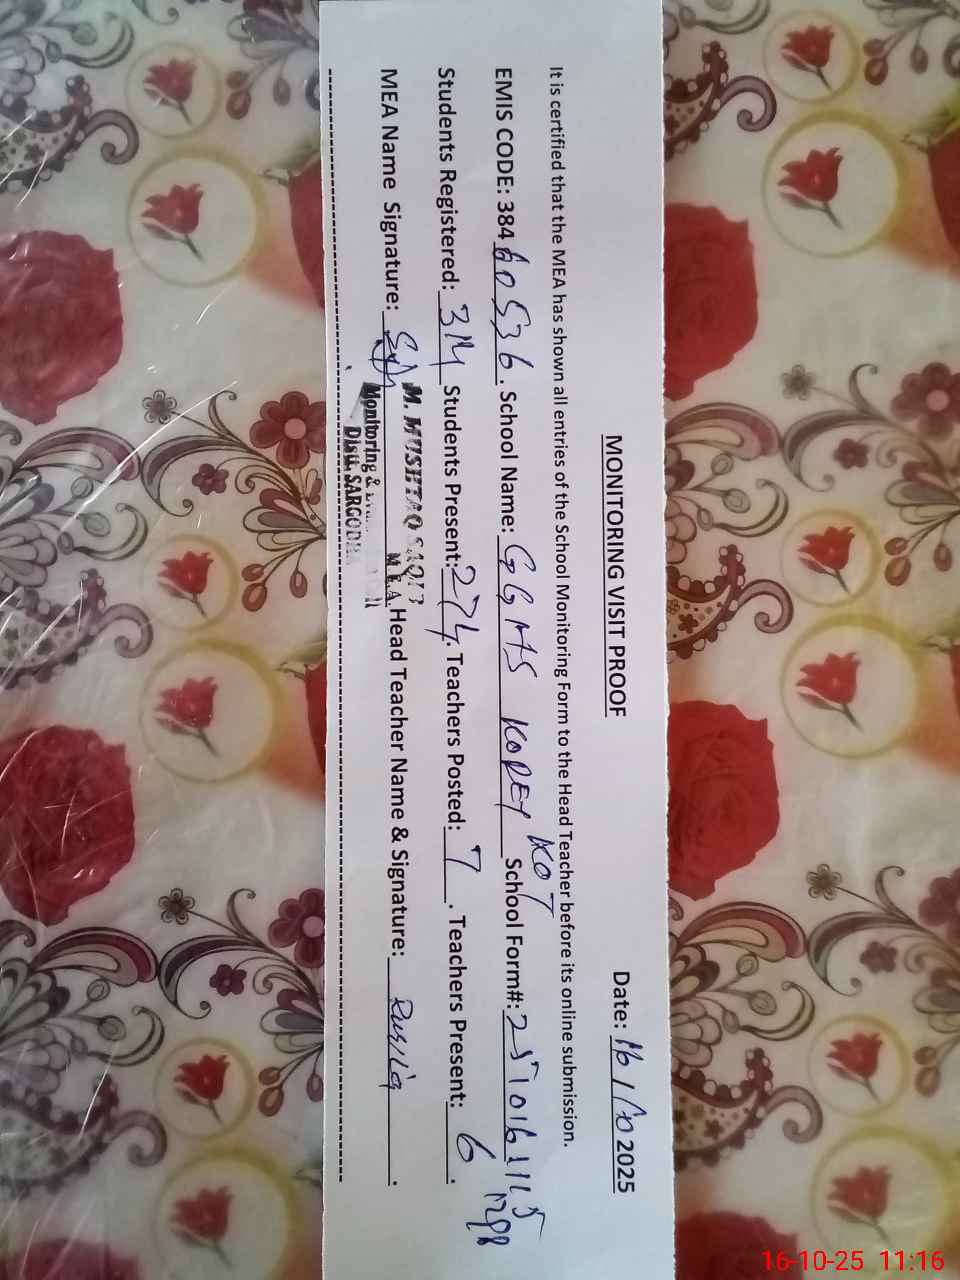 MONITORING VISIT PROOF
Date: 16/10 2025
It is certified that the MEA has shown all entries of the School Monitoring Form to the Head Teacher before its online submission.
EMIS CODE: 384 60536. School Name: GGHS KOREY KOT School Form#: 251016
Students Registered: 314 Students Present: 274. Teachers Posted: 7. Teachers Present: 6.
MEA Name Signature: Head Teacher Name & Signature:
M. MUSHTAQ SAQIB
M.E.A.
Monitoring &
Distt. SARGODHA
16-10-25 11:16